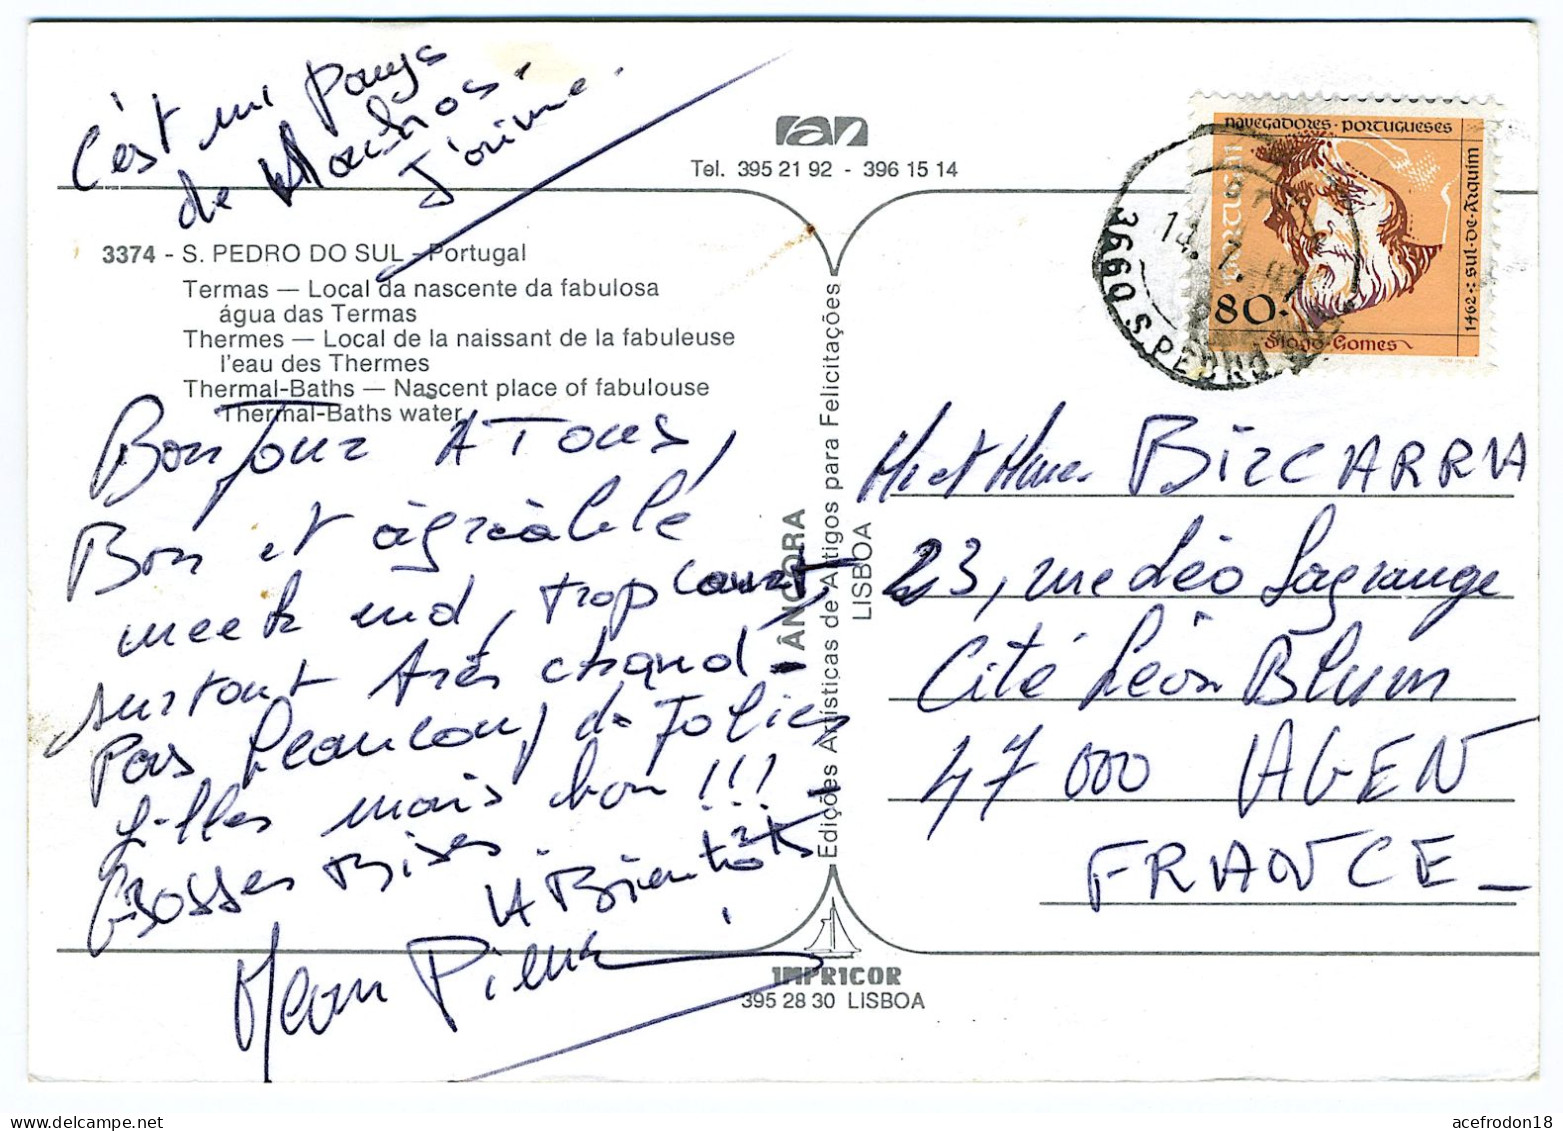 C'est un pays
de Machos.
J'arrive.
ran
Tel. 395 21 92 - 396 15 14
3374 - S. PEDRO DO SUL - Portugal
Termas — Local da nascente da fabulosa
água das Termas
Thermes — Local de la naissant de la fabuleuse
l'eau des Thermes
Thermal-Baths — Nascent place of fabulouse
Thermal-Baths water
Bonjour A Tous,
Bon et agréable
week end, trop court,
surtout très chaud.
Pas beaucoup de Jolies
filles mais bon !!!
Grosses Bises.
A Bientôt
Jean Pierre
ÂNCORA
Edições Artísticas de Artigos para Felicitações
LISBOA
IMPRICOR
395 28 30 LISBOA
NAVEGADORES · PORTUGUESES
PORTUGAL
80.
Diogo Gomes
1462 : Sul de Arquim
3660 S. PEDRO
14. 7.
Mr et Mme BIZCARRA
23, rue Léo Lagrange
Cité Léon Blum
47 000 AGEN
FRANCE
delcampe.net
acefrodon18